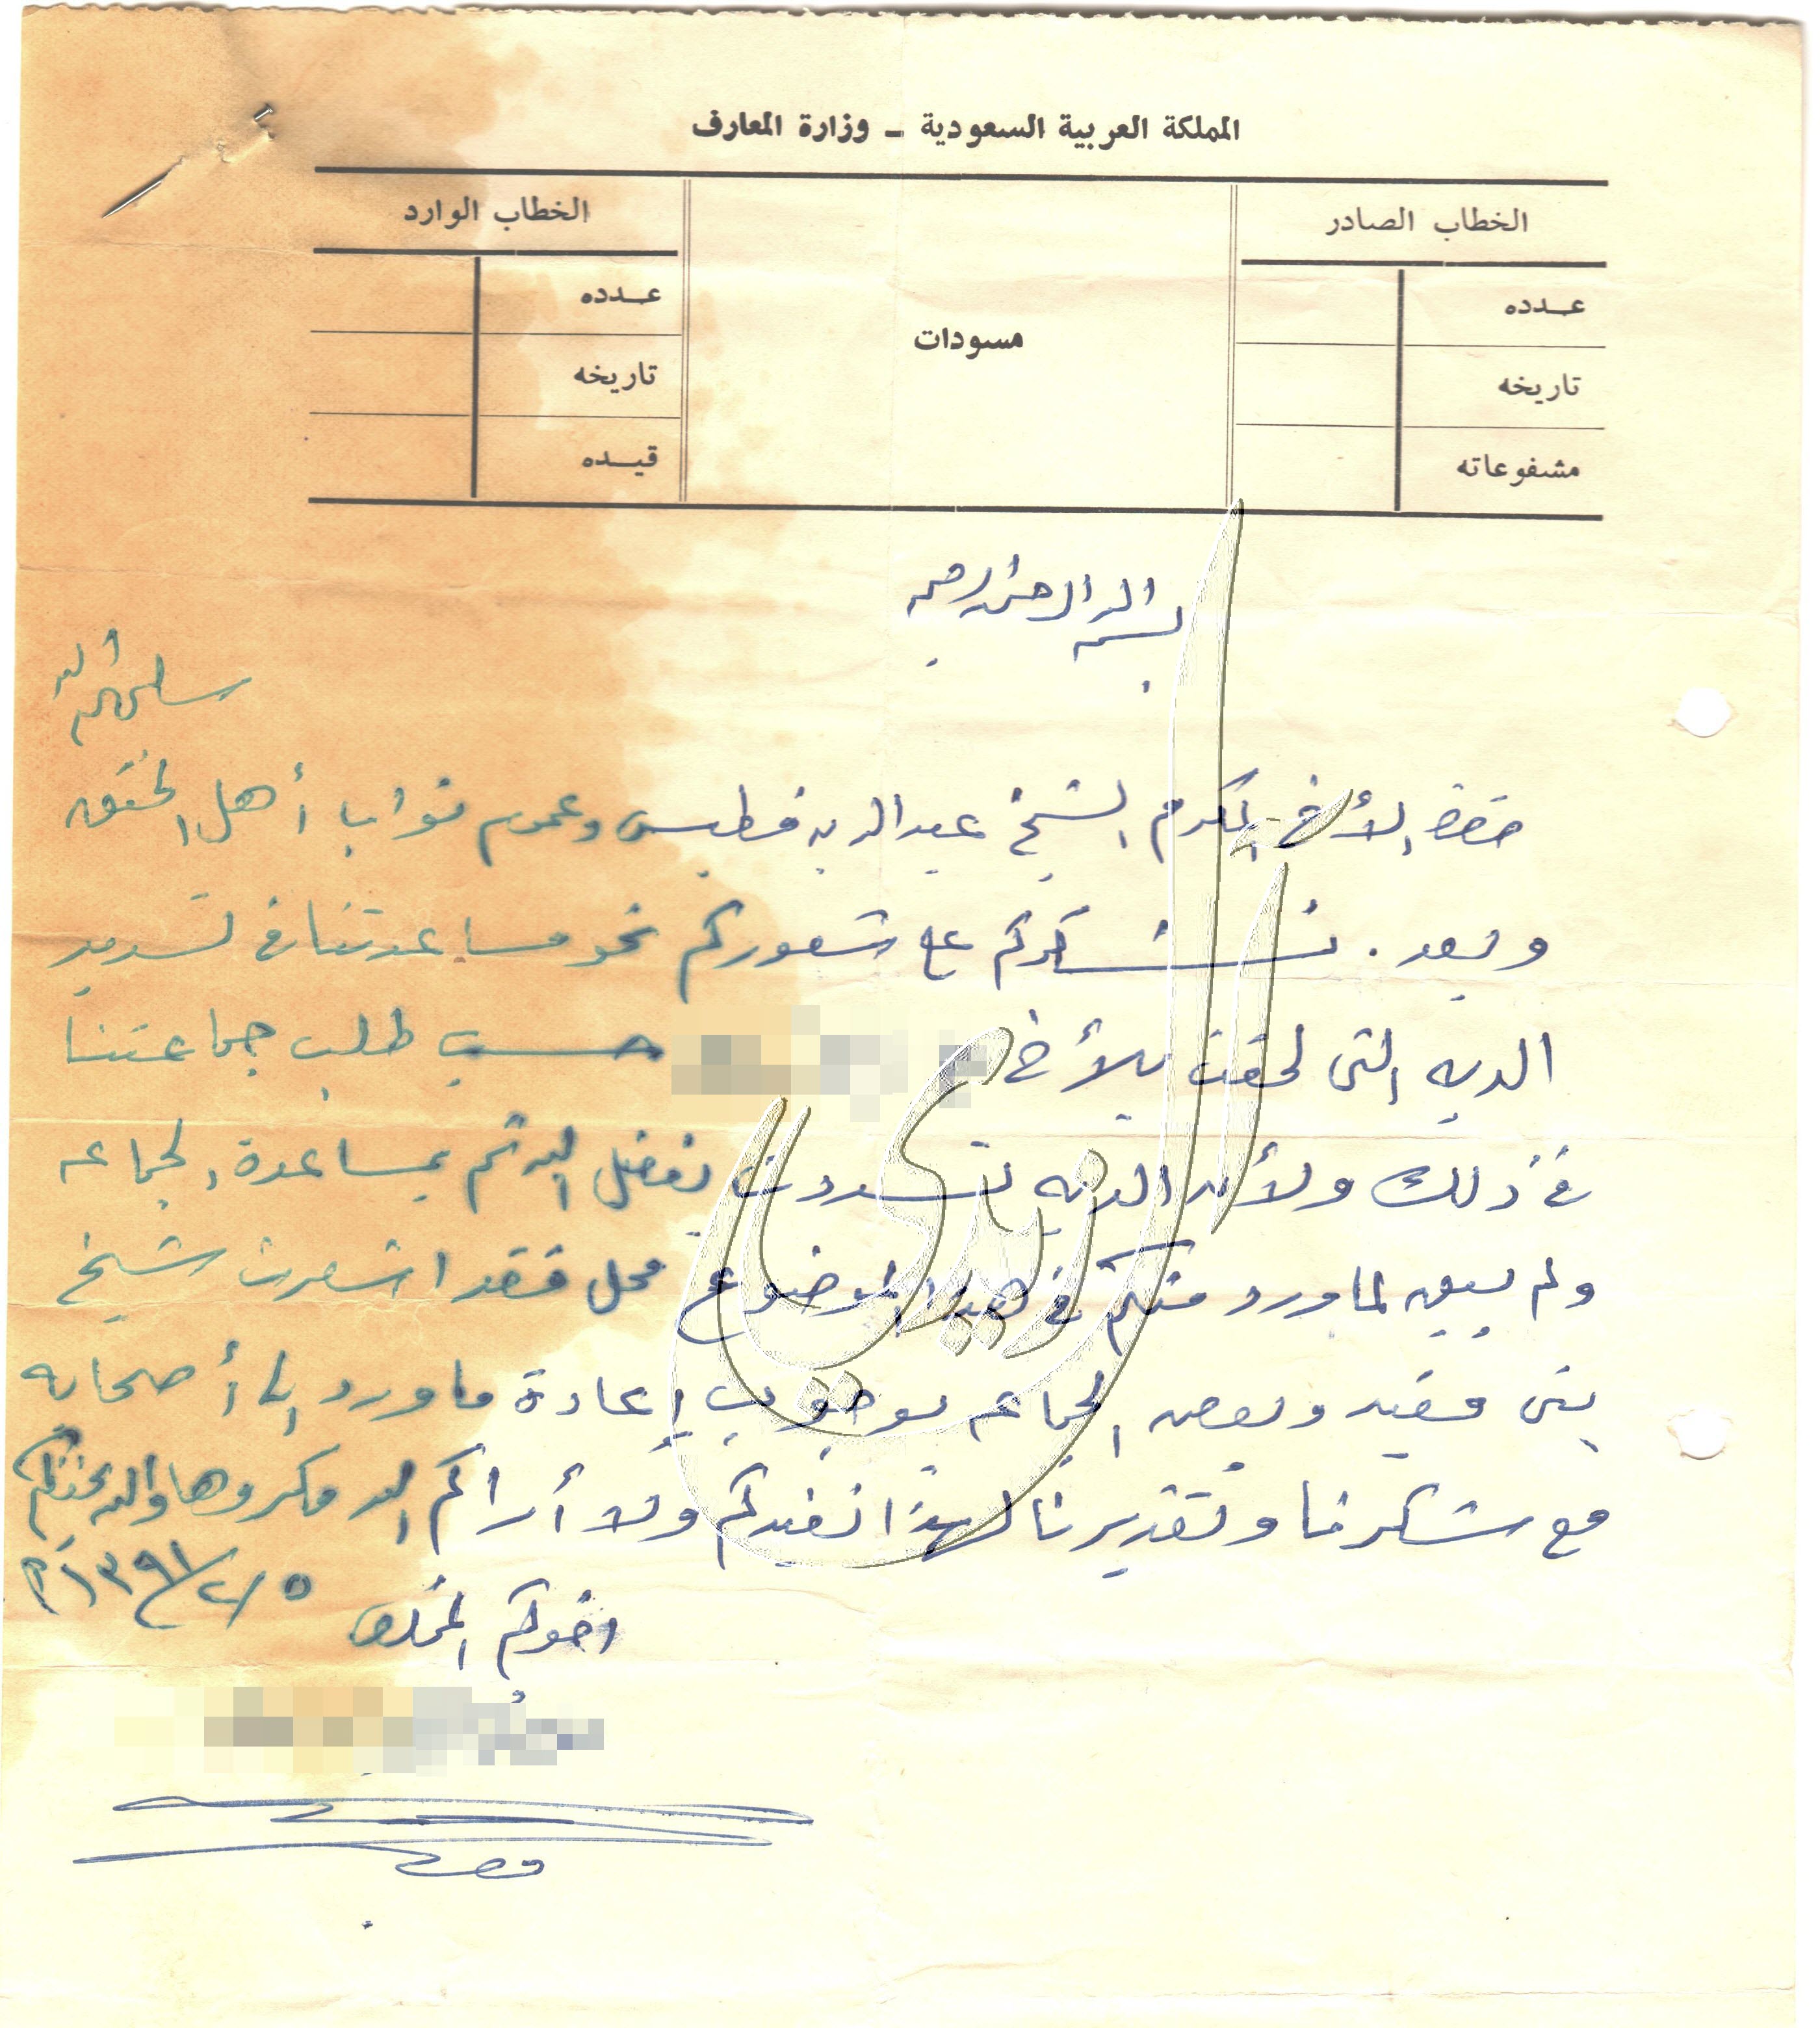 المملكة العربية السعودية - وزارة المعارف
الخطاب الصادر
عدده
تاريخه
مشفوعاته
مسودات
الخطاب الوارد
عدده
تاريخه
قيده
بسم الله الرحمن الرحيم
حضرة الأخ المكرم الشيخ عبدالله بن فطيس وعموم نوابا أهل الخنقه سلمهم الله
وبعد . نشكركم على شعوركم نحو مساعدتنا في تسديد
الديه التي لحقت بالأخ حسب طلب جماعتنا
في ذلك ولأن الديه تسددت بفضل الله ثم بمساعدة الجماعه
ولم يبق لما ورد منكم في هذا الموضوع محل فقد اشعرت شيخ
بني وبعض الجماعه بوجوب إعادة ما ورد إلى أصحابه
مع شكرنا وتقديرنا لهذا نفيدكم ولا أراكم الله مكروها والله يحفظكم
اخوكم المخلص ٥/٢/١٣٩١